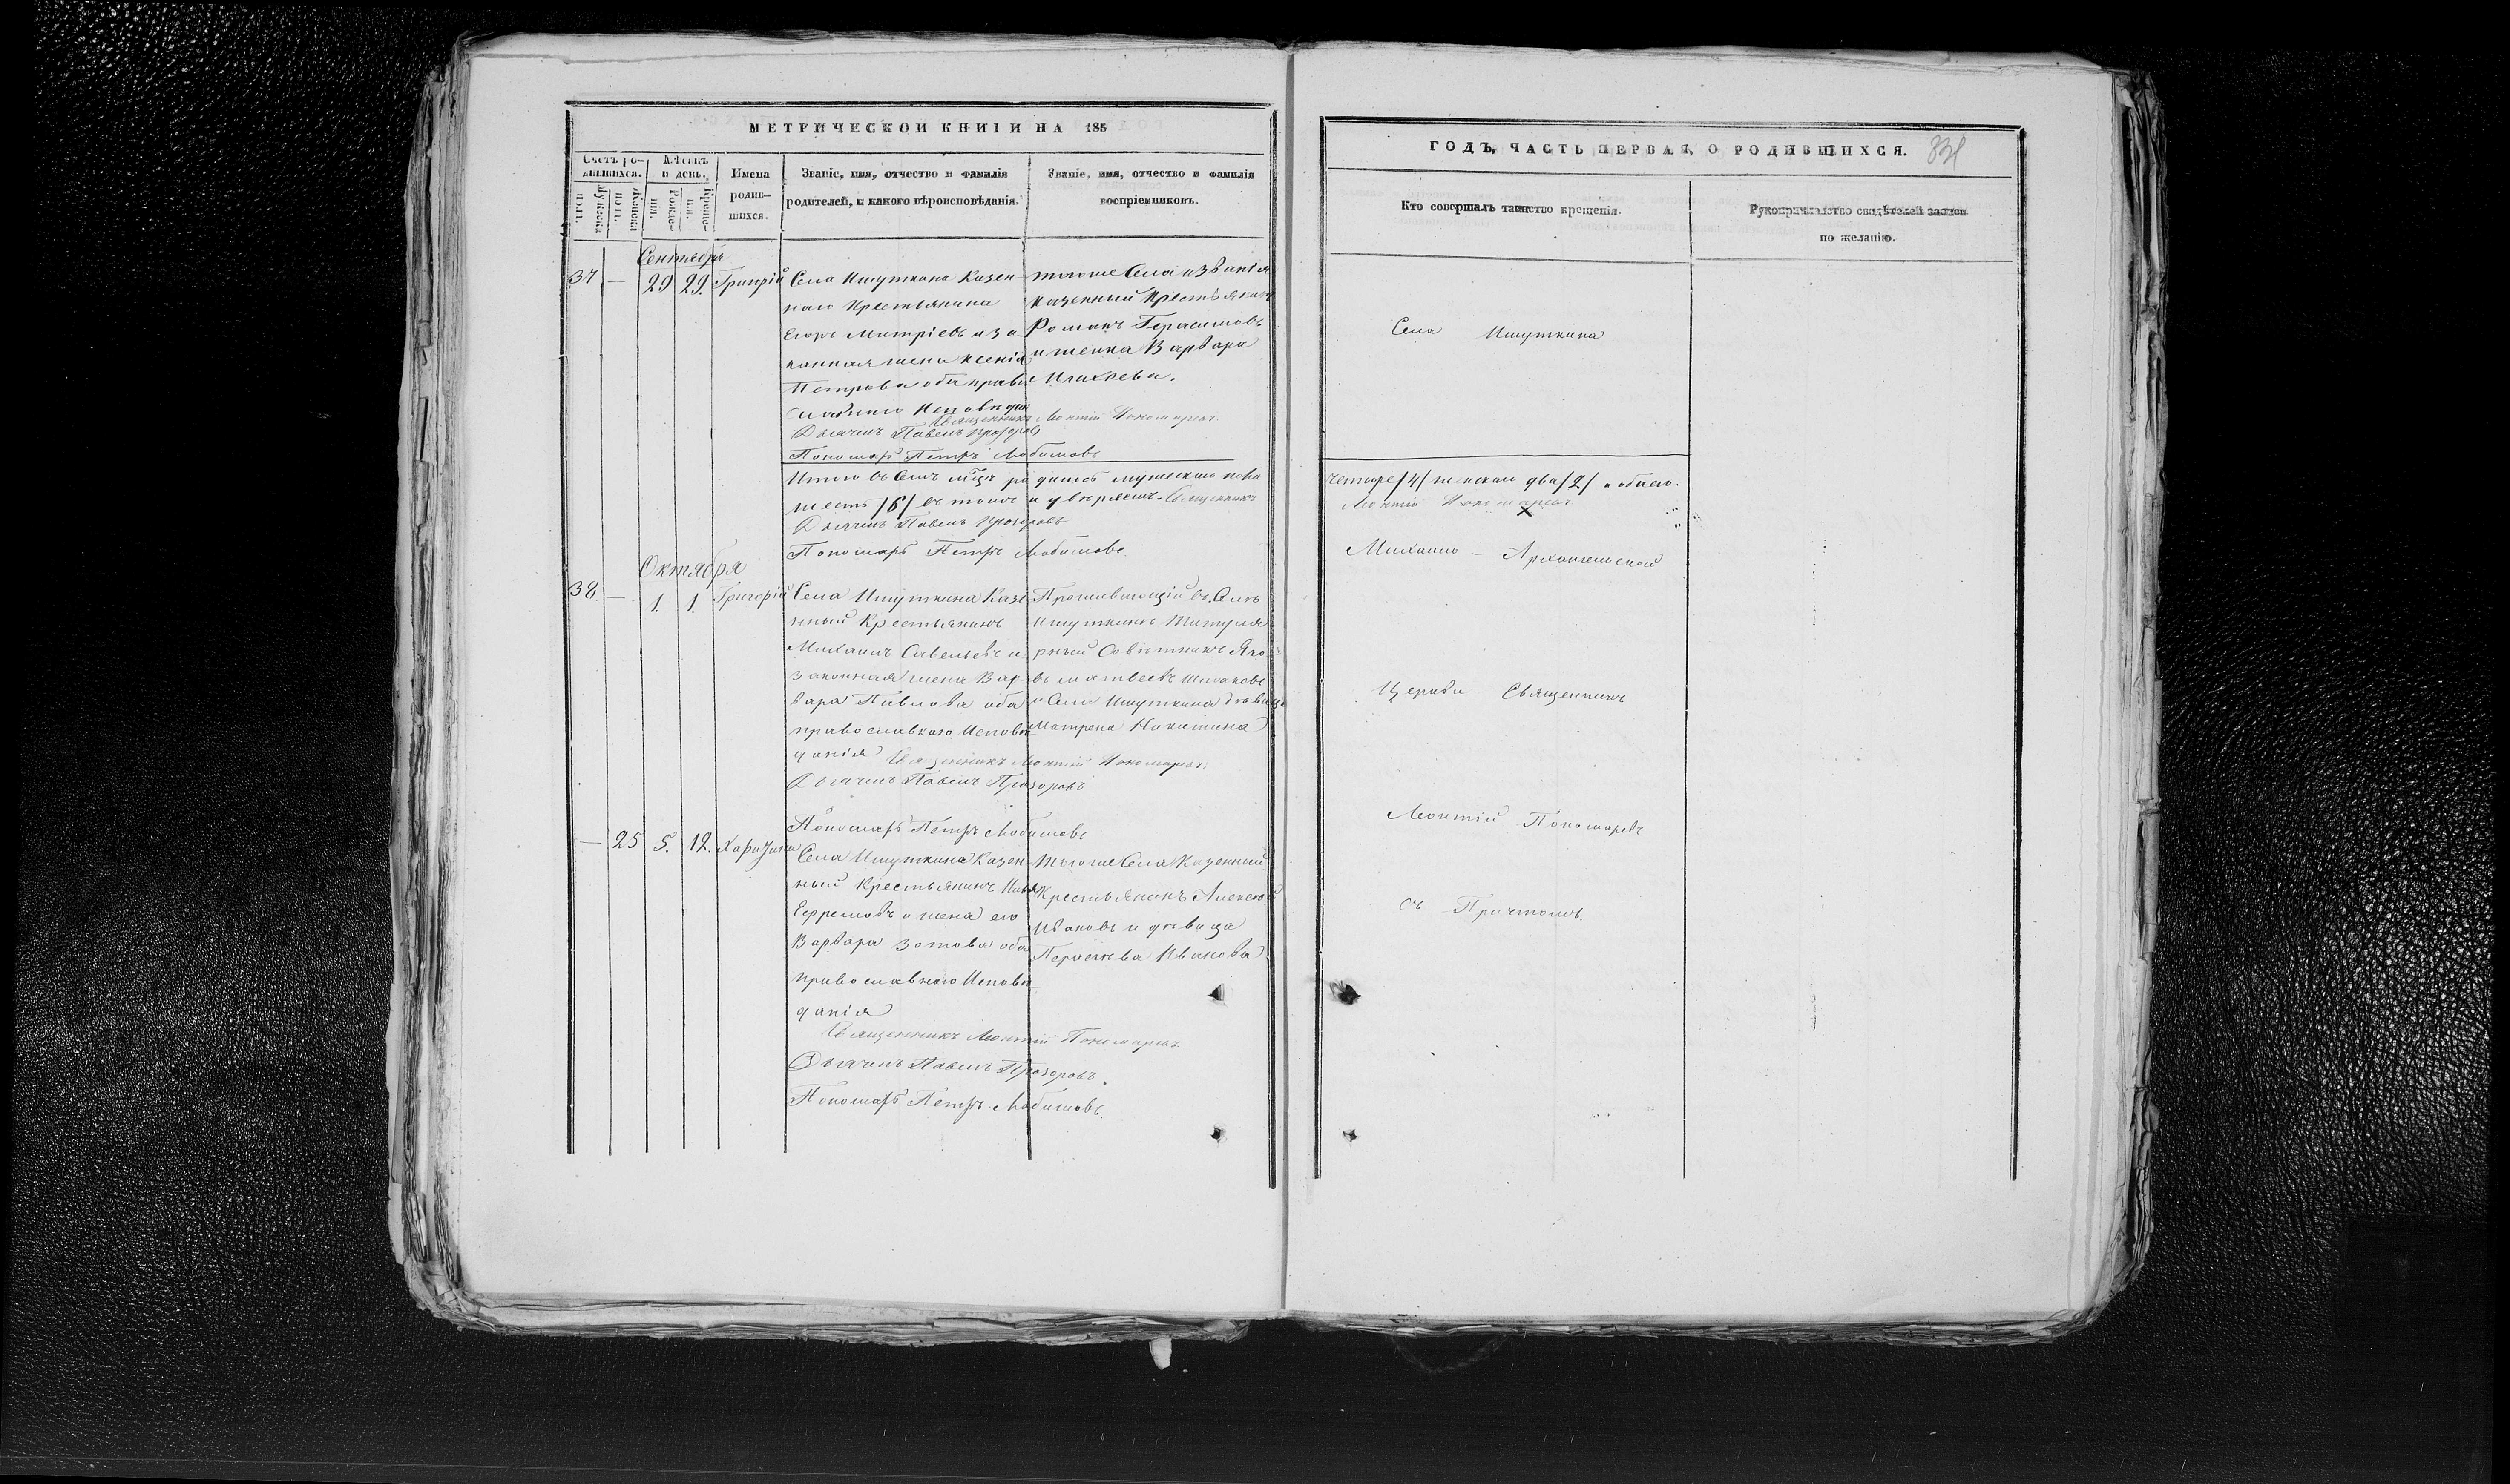 МЕТРИЧЕСКОЙ КНИГИ НА 185
Счетъ родившихся.
Мѣсяцъ и день.
Имена родившихся.
Званіе, имя, отчество и фамилія родителей, и какого вѣроисповѣданія.
Званіе, имя, отчество и фамилія воспріемниковъ.
Мужеска пола.
Женска пола.
Рожденія.
Крещенія.
Сентябрь
37 — 29 29. Григорій
Села Ишуткина Казен-
наго Крестьянина
Егоръ Митріевъ и за
конная жена Ксенія
Петрова оба право
славнаго Исповѣдан
тогоже Села
казенный Крестьянинъ
Романъ Герасимовъ
и женка Варвара
Священникъ Леонтій Пономаревъ
Дьячекъ Павелъ Прозоровъ
Пономарь Петръ Любимовъ
Итого въ Семъ м-цѣ родилось мужескаго пола
четыре /4/ женскаго два /2/ а обоего
шесть /6/ въ томъ и увѣряемъ. Священникъ
Леонтій Пономаревъ
Дьячекъ Павелъ Прозоровъ
Пономарь Петръ Любимовъ
Октября
38 — 1. 1. Григорій
Села Ишуткина Казе
нный Крестьянинъ
Михаилъ Савельевъ и
законная жена Вар
вара Павлова оба
православнаго Исповѣ
данія
Проживающій въ Селѣ
Ишуткинѣ Титуля
рный Совѣтникъ Яко
въ Матвеевъ
и Села Ишуткина дѣвица
Матрена Никитина
Священникъ Леонтій Пономаревъ
Дьячекъ Павелъ Прозоровъ
Пономарь Петръ Любимовъ
— 25 5. 12. Харитина
Села Ишуткина Казен-
ный Крестьянинъ Илья
Ефремовъ и жена его
Варвара Зотова оба
православнаго Исповѣ
данія
Тогоже Села Казенный
Крестьянинъ Алексѣй
Ивановъ и дѣвица
Иванова
Священникъ Леонтій Пономаревъ
Дьячекъ Павелъ Прозоровъ.
Пономарь Петръ Любимовъ.
ГОДЪ, ЧАСТЬ ПЕРВАЯ, О РОДИВШИХСЯ.
Кто совершалъ таинство крещенія.
Рукоприкладство свидѣтелей записи
по желанію.
Села Ишуткина
Михаило — Архангельской
Церкви Священникъ
Леонтій Пономаревъ
съ Причтомъ.